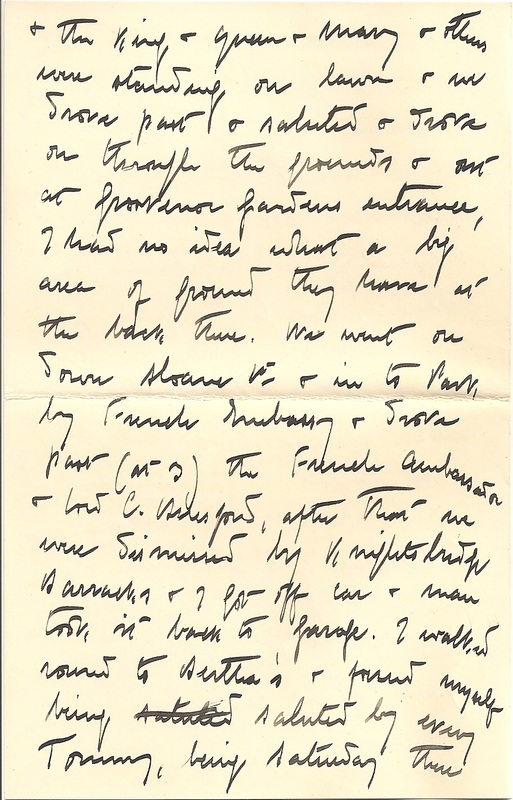 & the King & Queen & Mary & others
were standing on lawn & we
drove past & saluted & drove
on through the grounds & out
at Grosvenor Gardens entrance,
I had no idea what a big
area of ground they have at
the back there. We went on
down Sloane St & in to Park
by French Embassy & drove
past (at 3) the French Ambassador
& Lord C. Beresford, after that we
were dismissed by Knightsbridge
Barracks & I got off car & man
took it back to garage. I walked
round to Bertha's & found myself
being saluted saluted by every
Tommy, being Saturday there